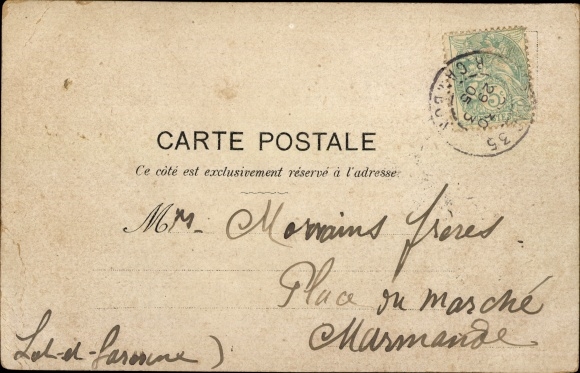 CARTE POSTALE
Ce côté est exclusivement réservé à l'adresse
Mrs. Morrains frères
Place du marché
Marmande
Lot-et-Garonne)
35
29
05